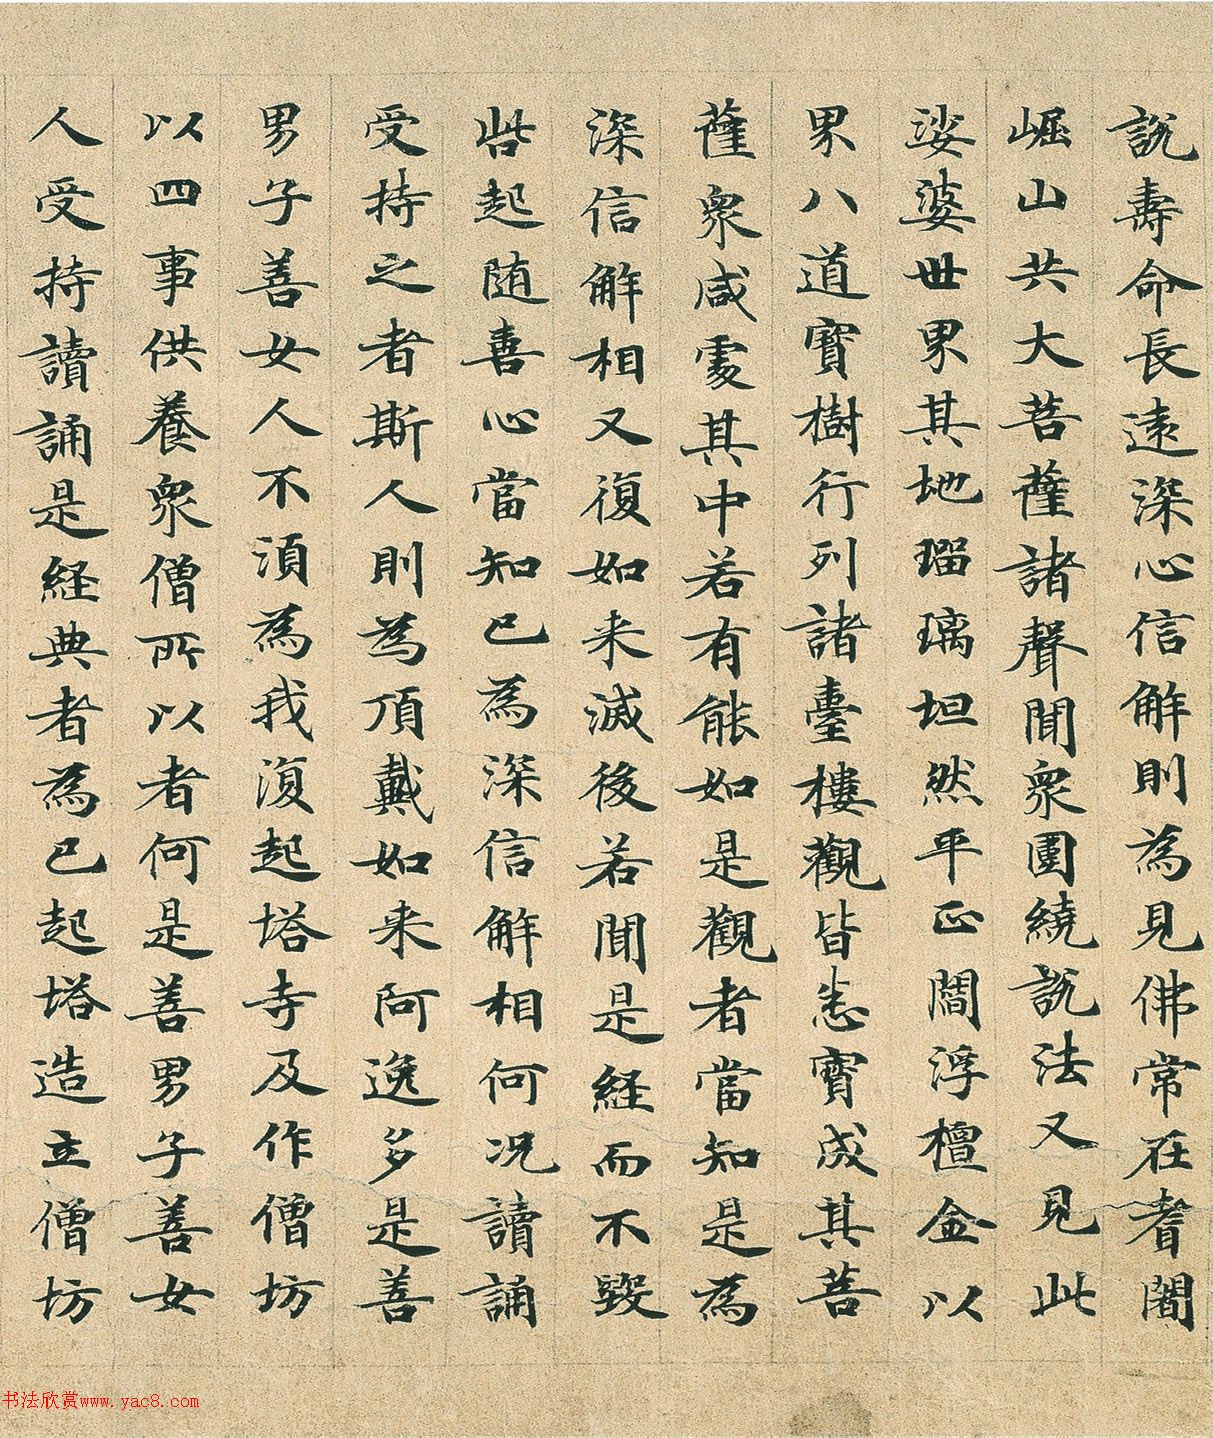 說壽命長遠深心信解則為見佛常在耆闍
崛山共大菩薩諸聲聞眾圍繞說法又見此
娑婆世界其地瑠璃坦然平正閻浮檀金以
界八道寶樹行列諸臺樓觀皆悉寶成其菩
薩眾咸處其中若有能如是觀者當知是為
深信解相又復如来滅後若聞是経而不毀
呰起随喜心當知已為深信解相何況讀誦
受持之者斯人則為頂戴如来阿逸多是善
男子善女人不須為我復起塔寺及作僧坊
以四事供養眾僧所以者何是善男子善女
人受持讀誦是経典者為已起塔造立僧坊
书法欣赏www.yac8.com